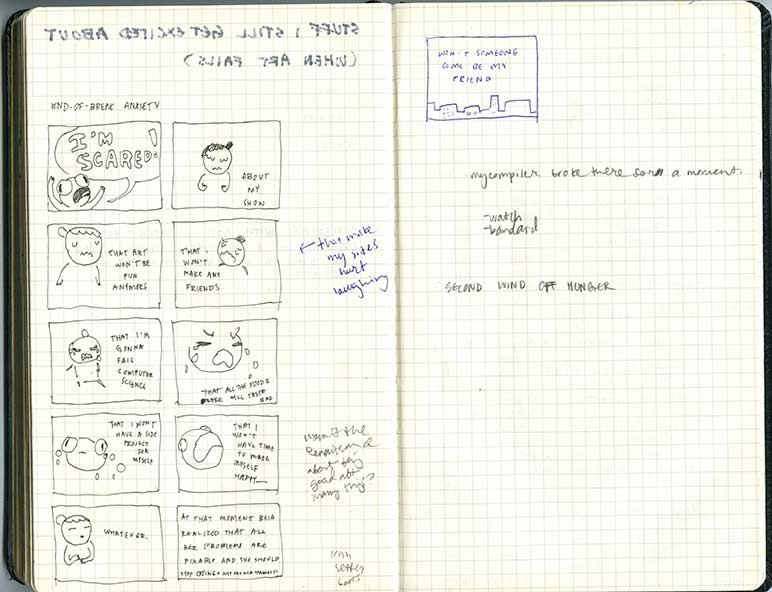 STUFF I STILL GET EXCITED ABOUT
(WHEN ART FAILS)
END-OF-BREAK ANXIETY
I'M
SCARED!
ABOUT
MY
SHOW
THAT ART
WON'T BE
FUN
ANYMORE
THAT I
WON'T
MAKE ANY
FRIENDS
← that make
my sides
hurt
laughing
THAT I'M
GONNA
FAIL
COMPUTER
SCIENCE
THAT ALL THE FOOD I
MAKE WILL TASTE
BAD
THAT I WON'T
HAVE A SIDE
PROJECT
FOR
MYSELF
THAT I
WON'T
HAVE TIME
TO MAKE
MYSELF
HAPPY
wasn't the
Renaissance
about being
good at
many things?
WHATEVER.
AT THAT MOMENT
REALIZED THAT ALL
HER PROBLEMS ARE
FIXABLE AND SHE SHOULD
STOP CRYING
Irish
Setter
boots
WON'T SOMEONE
COME BE MY
FRIEND
my compiler broke there for a moment.
-watch
SECOND WIND OF HUNGER